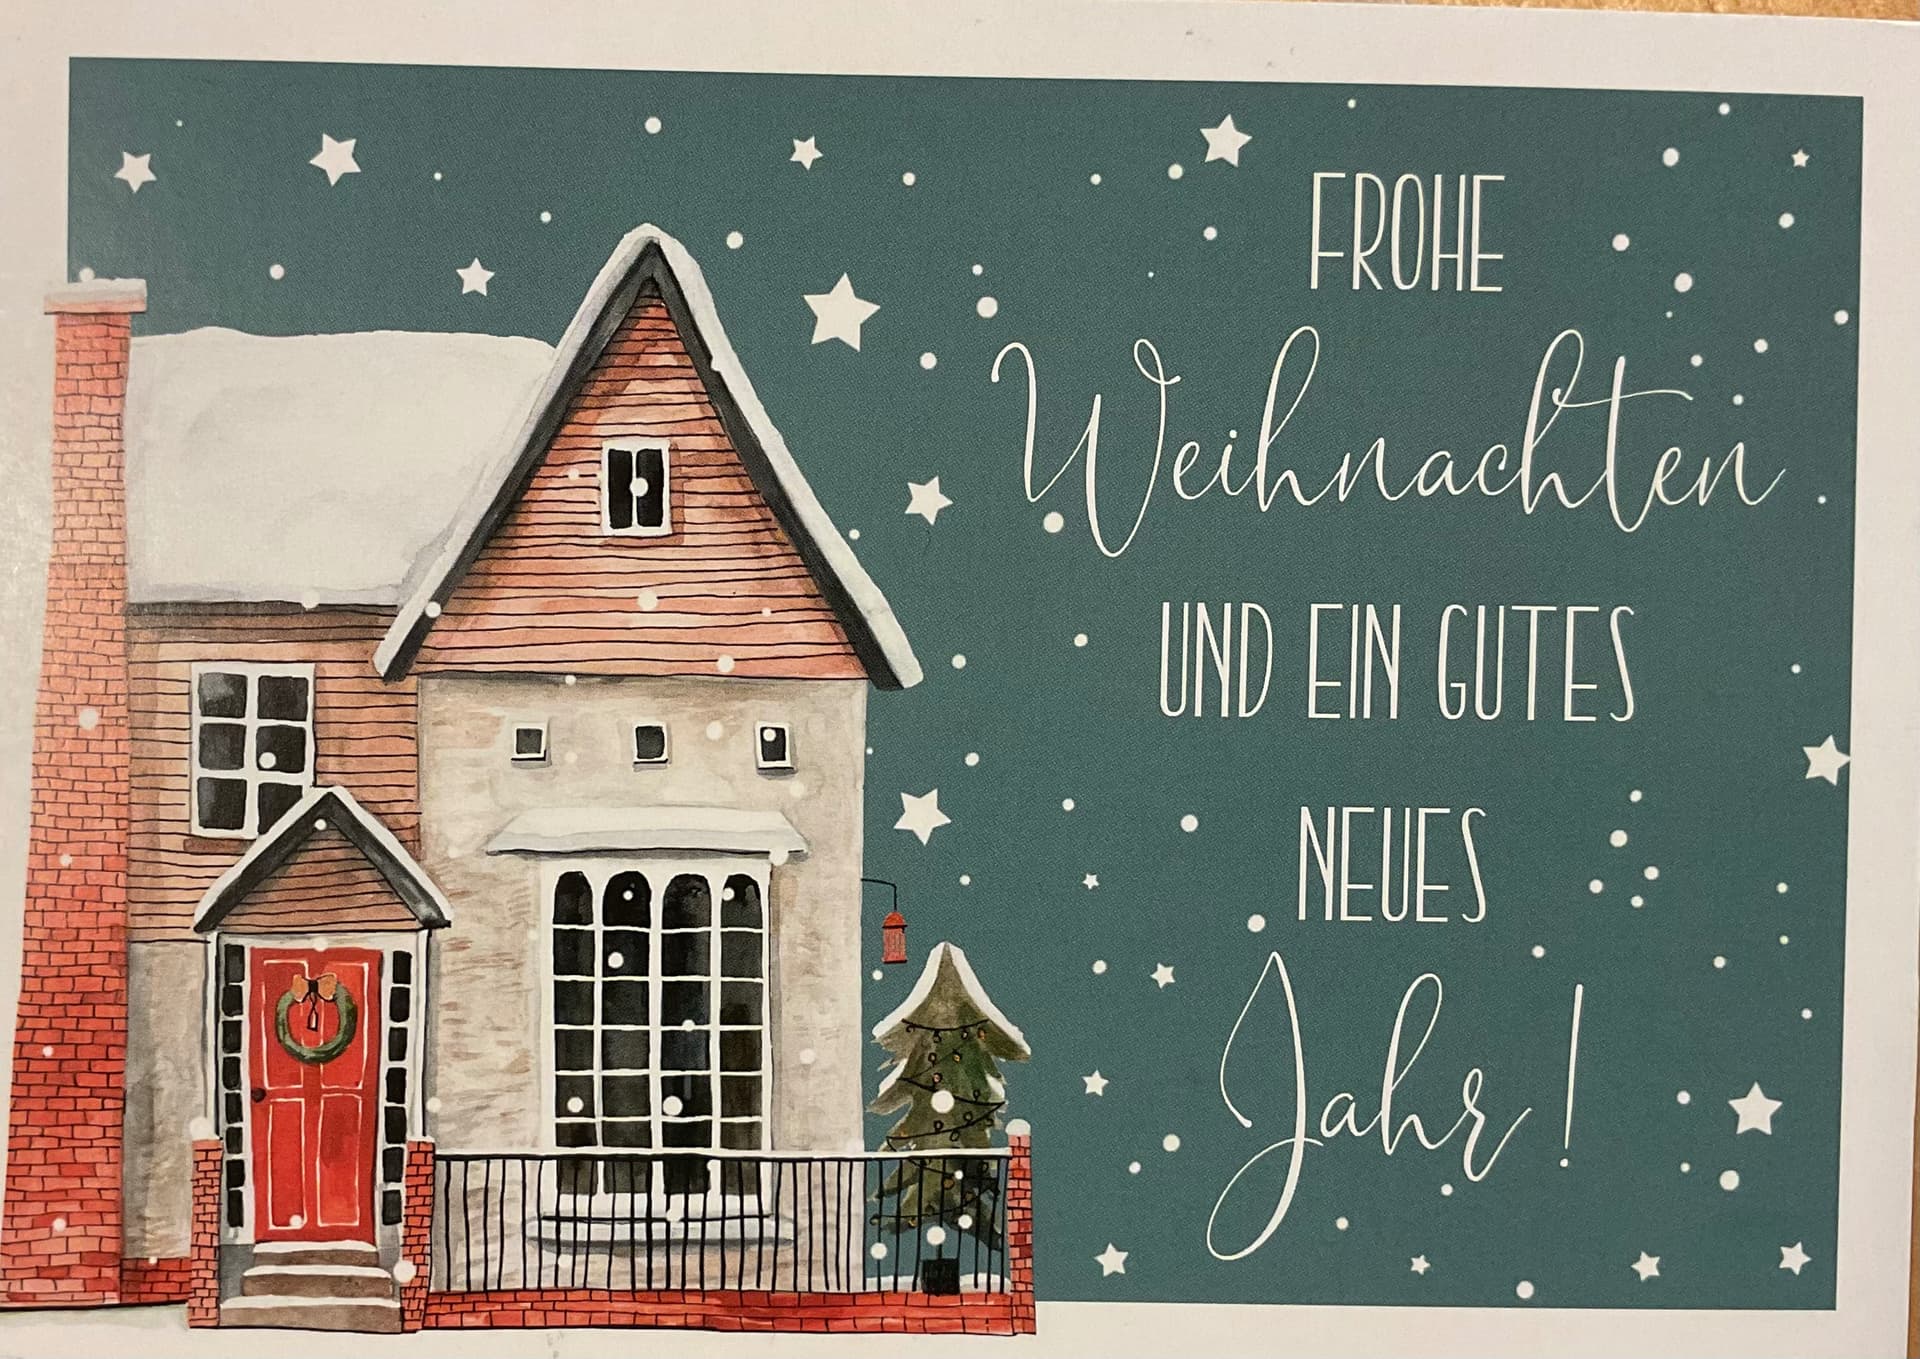 FROHE
Weihnachten
UND EIN GUTES
NEUES
Jahr!